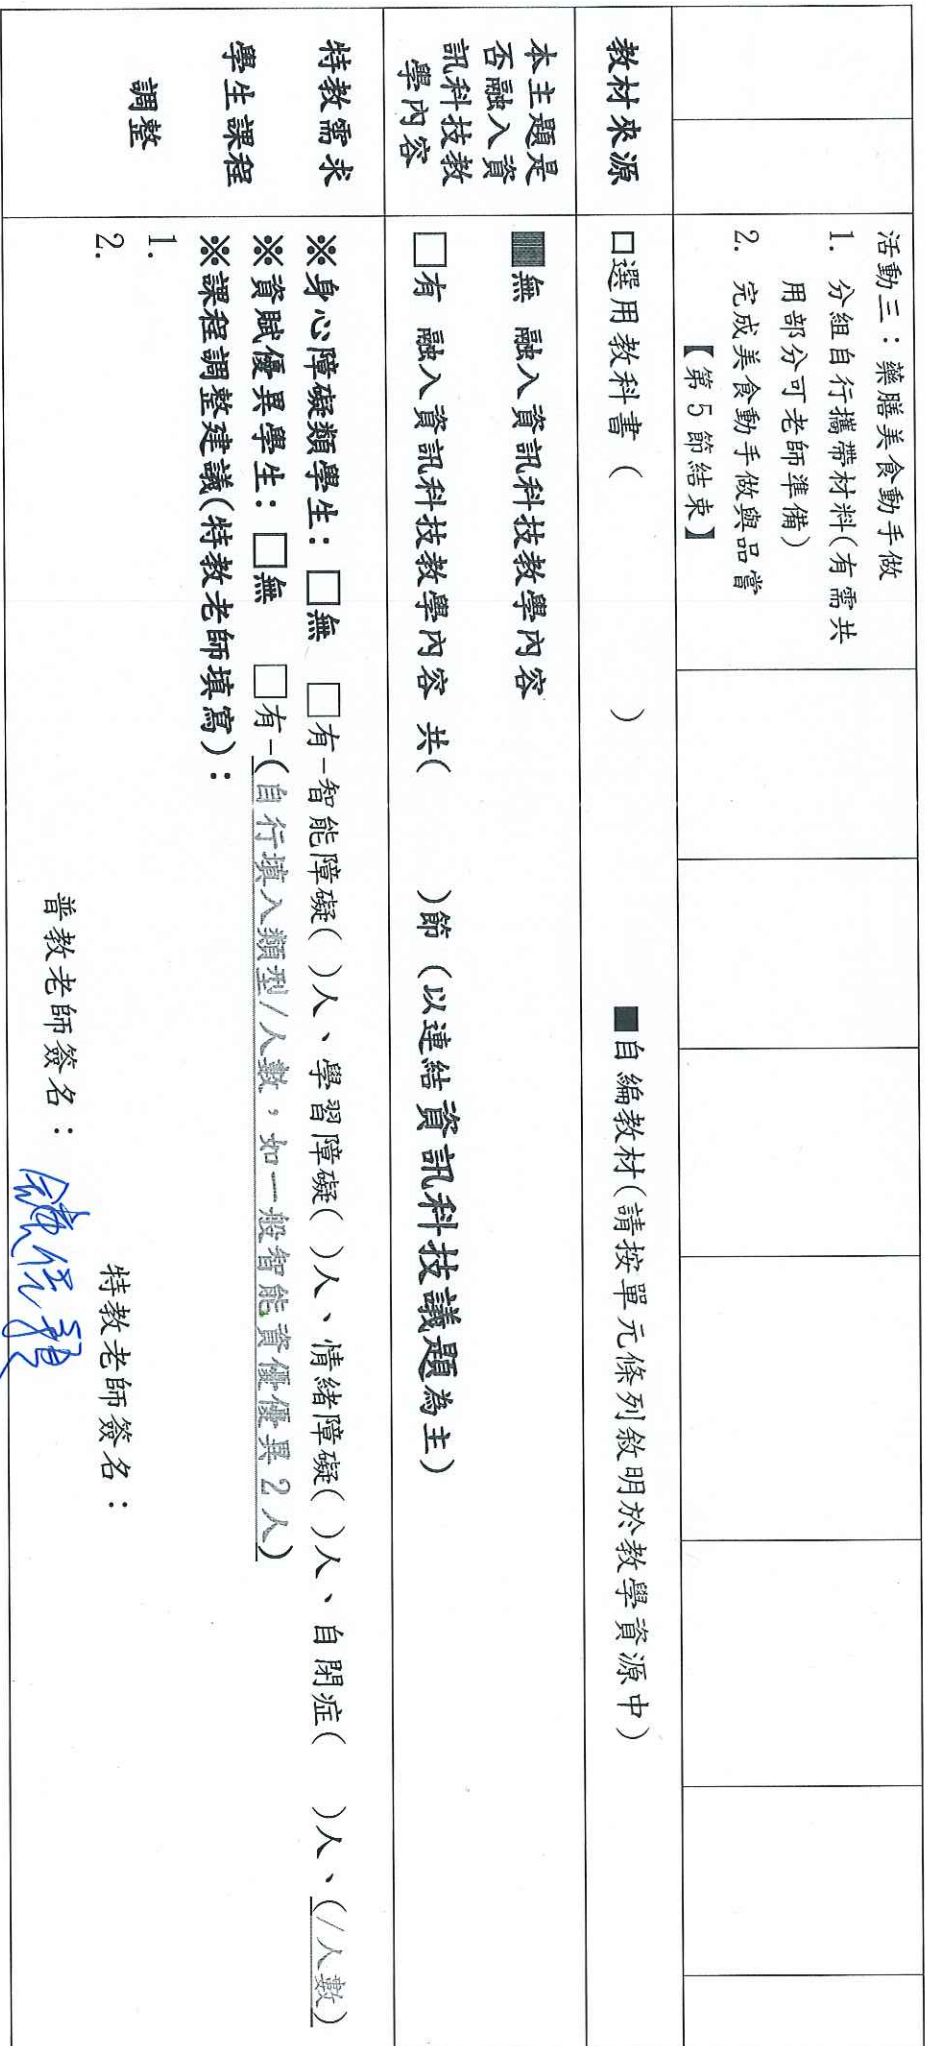 活動三：藥膳美食動手做
1. 分組自行攜帶材料(有需共
用部分可老師準備)
2. 完成美食動手做與品嘗
【第 5 節結束】
教材來源
□選用教科書 ( )
■自編教材(請按單元條列敘明於教學資源中)
本主題是
否融入資
訊科技教
學內容
■無 融入資訊科技教學內容
□有 融入資訊科技教學內容 共( )節 (以連結資訊科技議題為主)
特教需求
學生課程
調整
※身心障礙類學生：□無 □有-智能障礙( )人、學習障礙( )人、情緒障礙( )人、自閉症( )人、(/人數)
※資賦優異學生：□無 □有-(自行填入類型/人數，如一般智能資優優異 2 人)
※課程調整建議(特教老師填寫)：
1.
2.
特教老師簽名：
普教老師簽名：